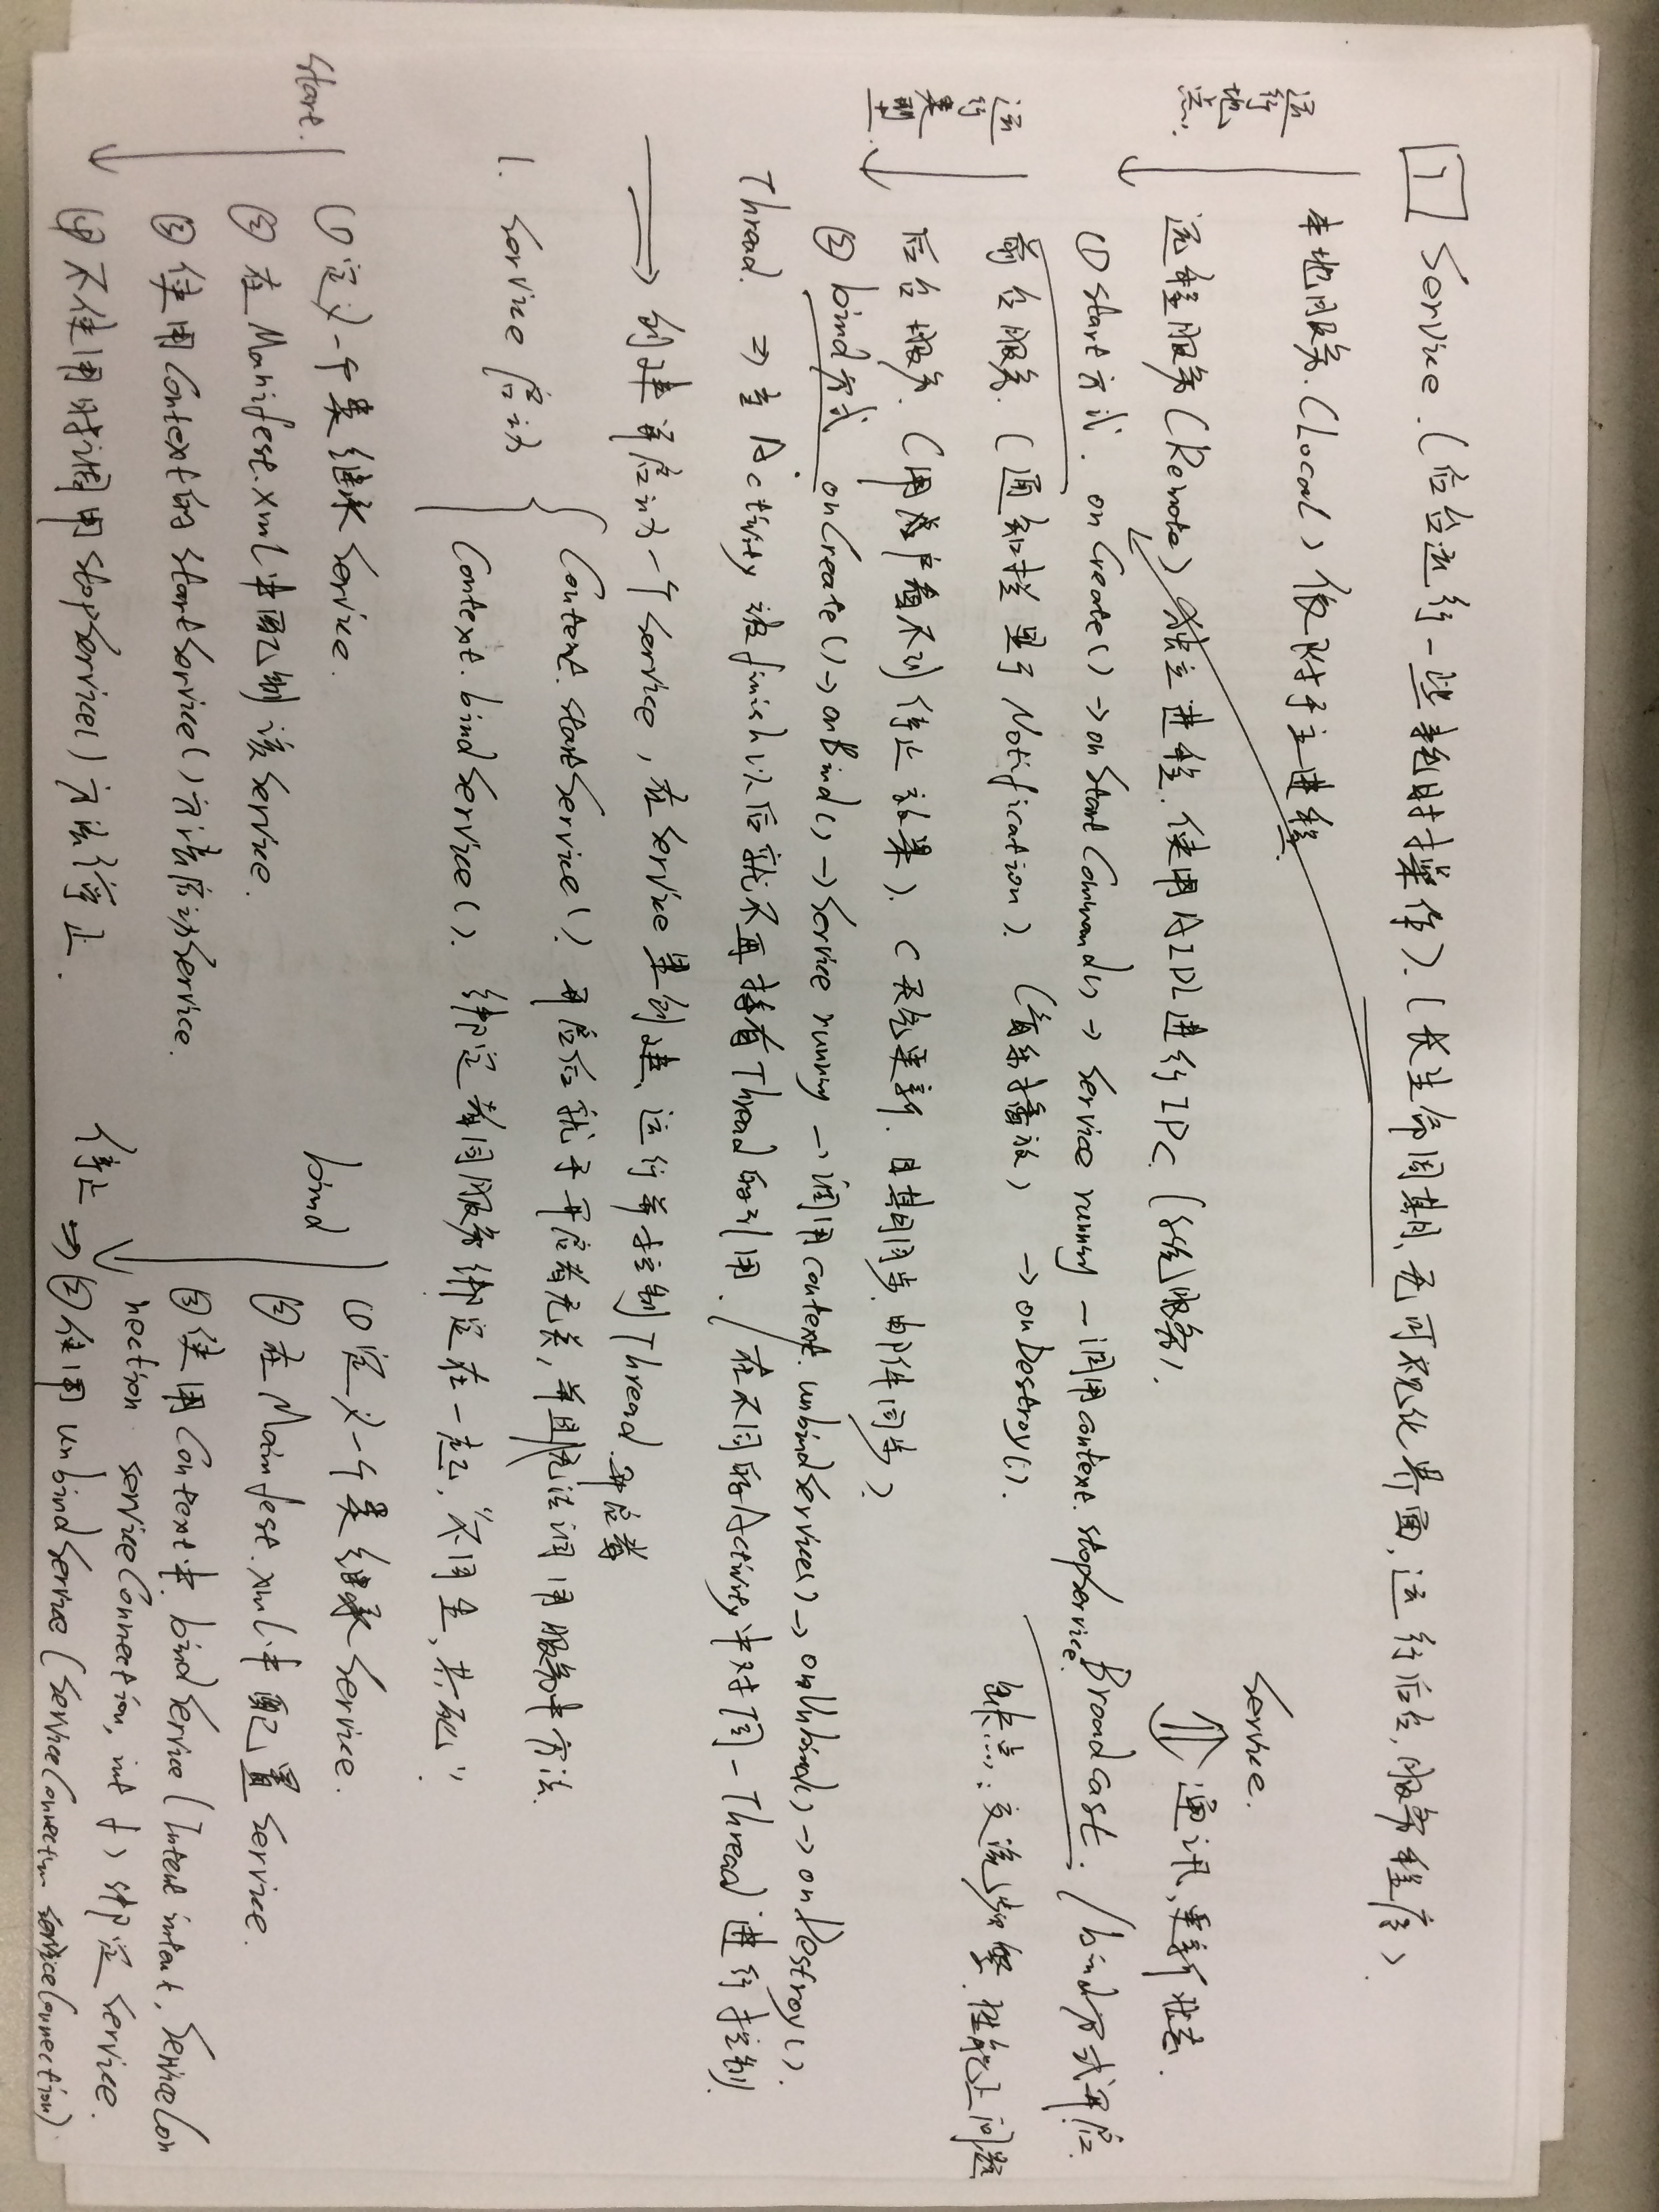 1 Service.(后台运行一些耗时操作).(长生命周期、无可视化界面,运行后台,服务程序)
运行地点:
本地服务.(Local) 依附于主进程.
远程服务(Remote) 独立进程.使用AIDL进行IPC.(系统服务).
Service.
通讯,更新状态.
运行类型
① start方式. onCreate()→onStartCommand()→Service running —调用context.stopService.
→onDestroy().
Broadcast. / bind方式开启.
缺点:交流频繁.性能上问题
前台服务.(通知栏显示Notification).(音乐播放)
后台服务.(用户看不到停止效果).(天气更新.日期同步.邮件同步)
② bind方式 onCreate()→onBind()→Service running —调用context.unbindService()→onUnbind()→onDestroy().
Thread. ⇒ 当Activity被finish以后就不再持有Thread的引用. / 在不同的Activity中对同一Thread进行控制.
→ 创建并启动一个Service,在Service里创建、运行并控制Thread.
1. Service启动
Context.startService(). 开启后就于开启者无关,并且无法调用服务中方法.
开启者
Context.bindService(). 绑定者同服务绑定在一起,"不同生,共死".
start.
① 定义一个类继承Service.
② 在Manifest.xml中配制该Service.
③ 使用Context的startService()方法启动Service.
④ 不使用时调用stopService()方法停止.
bind
① 定义一个类继承Service.
② 在Mainfest.xml中配置Service.
③ 使用Context中bindService(Intent intent, ServiceCon
nection serviceConnection, int f)绑定Service.
停止⇒④使用unbindService(ServiceConnection serviceConnection)